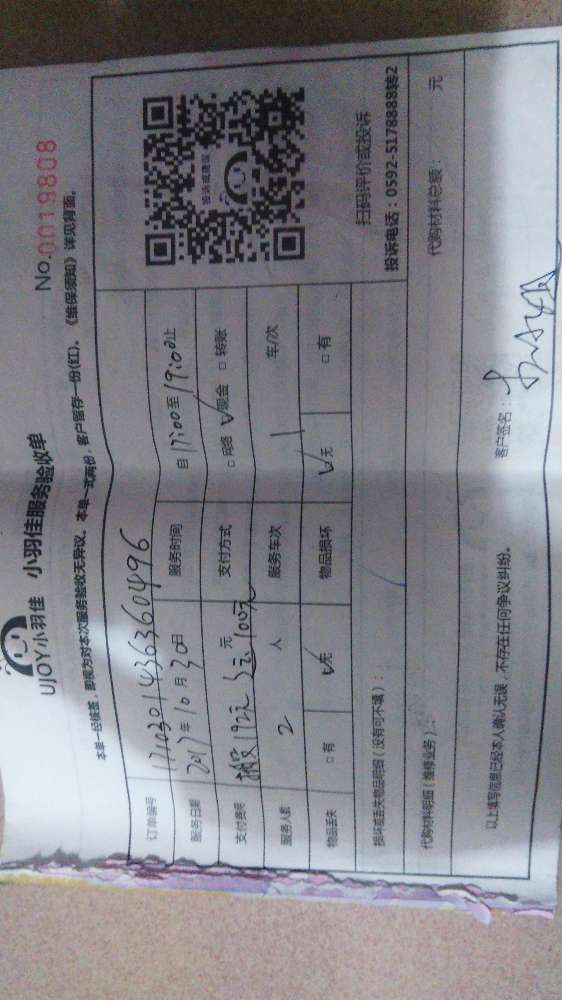 UJOY小羽佳 小羽佳服务验收单
No.0019808
本单一经核签，即视为对本次服务验收无异议。本单一式两份，客户留存一份(红)。《维保须知》详见背面。
订单编号 1710301436360496
服务日期 2017年10月30日 服务时间 自17:00至19:00止
支付费用 192元 100元 元 支付方式 □网络 √现金 □转账
服务人数 2 人 服务车次 1 车/次
物品丢失 □有 √无 物品损坏 √无 □有
投诉或建议
扫码评价或投诉
投诉电话：0592-5178888转2
损坏或丢失物品明细（没有可不填）：
代购材料明细（维修业务）： 代购材料总额： 元
以上填写信息已经本人确认无误，不存在任何争议纠纷。
客户签名：